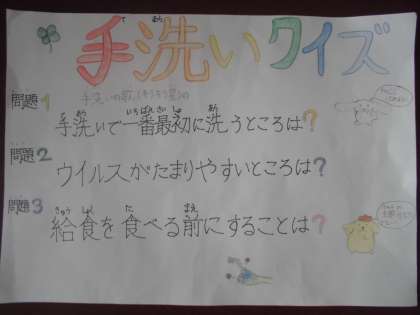 手洗いクイズ
手洗いの歌(きらきら星)の
問題1
手洗いで一番最初に洗うところは?
問題2
ウイルスがたまりやすいところは?
問題3
給食を食べる前にすることは?